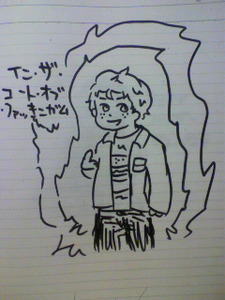 イン・ザ・
コート・オブ
・ファッキンガム